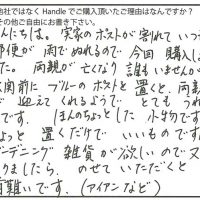 他社ではなく Handle でご購入頂いたご理由はなんですか?
その他ご自由にお書き下さい。
んにちは。実家のポストが割れていつ
郵便が雨でぬれるので今回購入し
た。両親が亡くなり誰もいませんが
玄関前にブルーのポストと置くと、両親
が迎えてくれるようで とてもうれ
です。ほんのちょっとした小物です
ちょっと置くだけでいいものです
ガーデニング 雑貨が欲しいので又
りましたら、のせていただくと
有難いです。(アイアンなど)